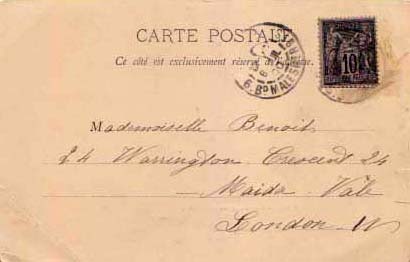 CARTE POSTALE
Ce côté est exclusivement réservé
10
6. BD MALESHERBES
Mademoiselle Benoit
24 Warrington Crescent 24
Maida Vale
London W